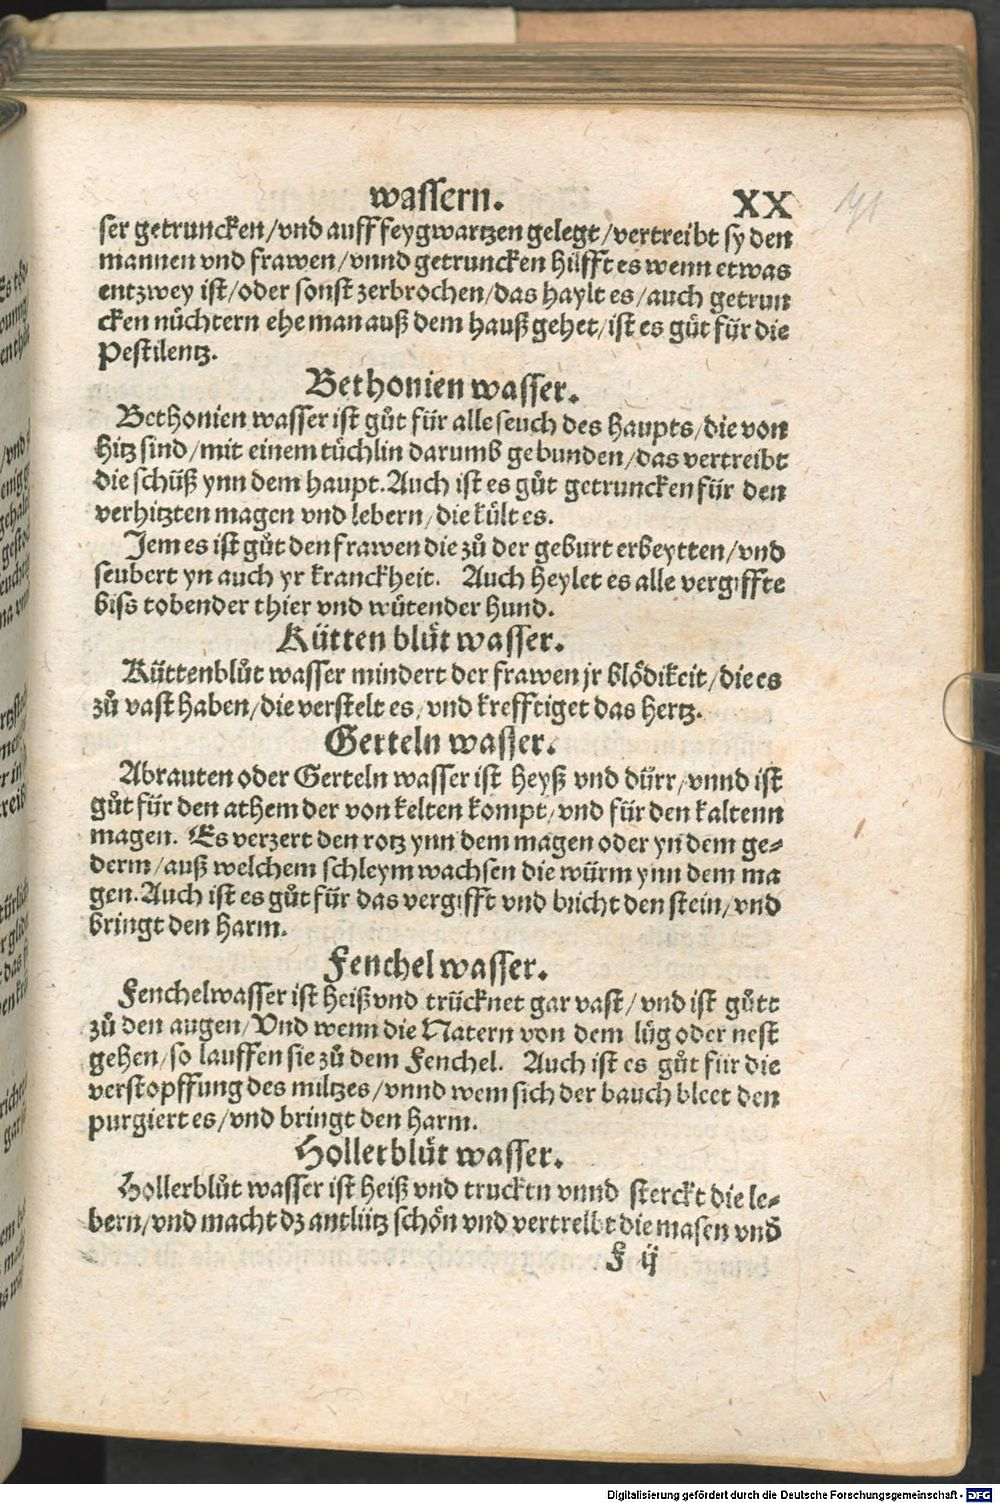 wassern. XX
ser getruncken/vnd auff feygwartzen gelegt/vertreibt sy den
mannen vnd frawen/vnnd getruncken hilfft es wenn etwas
entzwey ist/oder sonst zerbrochen/das haylt es/auch getrun
cken nüchtern ehe man auß dem hauß gehet/ist es gůt für die
Pestilentz.
Bethonien wasser.
Bethonien wasser ist gůt für alle seuch des haupts/die von
hitz sind/mit einem tüchlin darumb gebunden/das vertreibt
die schüß ynn dem haupt. Auch ist es gůt getruncken für den
verhitzten magen vnd lebern/die kült es.
Jem es ist gůt den frawen die zů der geburt erbeytten/vnd
seubert yn auch yr kranckheit. Auch heylet es alle vergiffte
biss tobender thier vnd wütender hund.
Kütten blůt wasser.
Küttenblůt wasser mindert der frawen jr blödikeit/die es
zů vast haben/die verstelt es/vnd krefftiget das hertz.
Gerteln wasser.
Abrauten oder Gerteln wasser ist heyß vnd dürr/vnnd ist
gůt für den athem der von kelten kompt/vnd für den kaltenn
magen. Es verzert den rotz ynn dem magen oder yn dem ge-
derm/auß welchem schleym wachsen die würm ynn dem ma
gen. Auch ist es gůt für das vergifft vnd bricht den stein/vnd
bringt den harm.
Fenchel wasser.
Fenchelwasser ist heiß vnd trücknet gar vast/vnd ist gůtt
zů den augen/Vnd wenn die Natern von dem lůg oder nest
gehen/so lauffen sie zů dem Fenchel. Auch ist es gůt für die
verstopffung des miltzes/vnnd wem sich der bauch bleet den
purgiert es/vnd bringt den harm.
Hollerblůt wasser.
Hollerblůt wasser ist heiß vnd trucktn vnnd sterckt die le-
bern/vnd macht dz antlütz schön vnd vertreibt die masen vnd
F ij
Digitalisierung gefördert durch die Deutsche Forschungsgemeinschaft - DFG